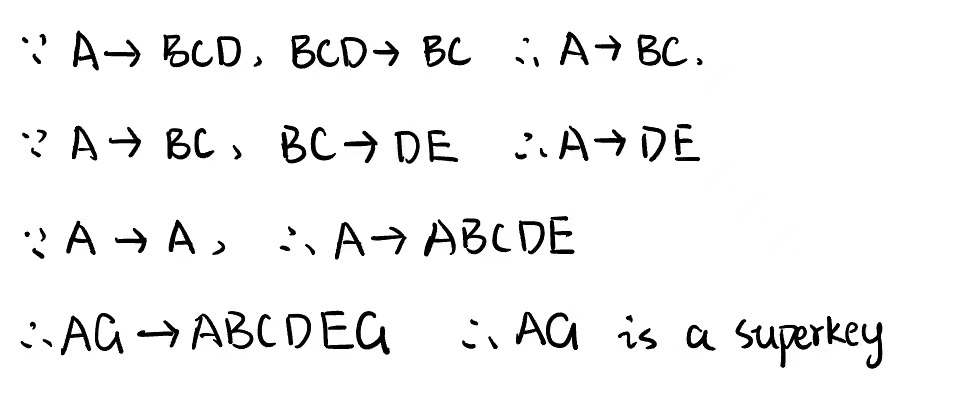 ∵ A → BCD, BCD → BC ∴ A → BC.
∵ A → BC, BC → DE ∴ A → DE
∵ A → A, ∴ A → ABCDE
∴ AG → ABCDEG ∴ AG is a superkey